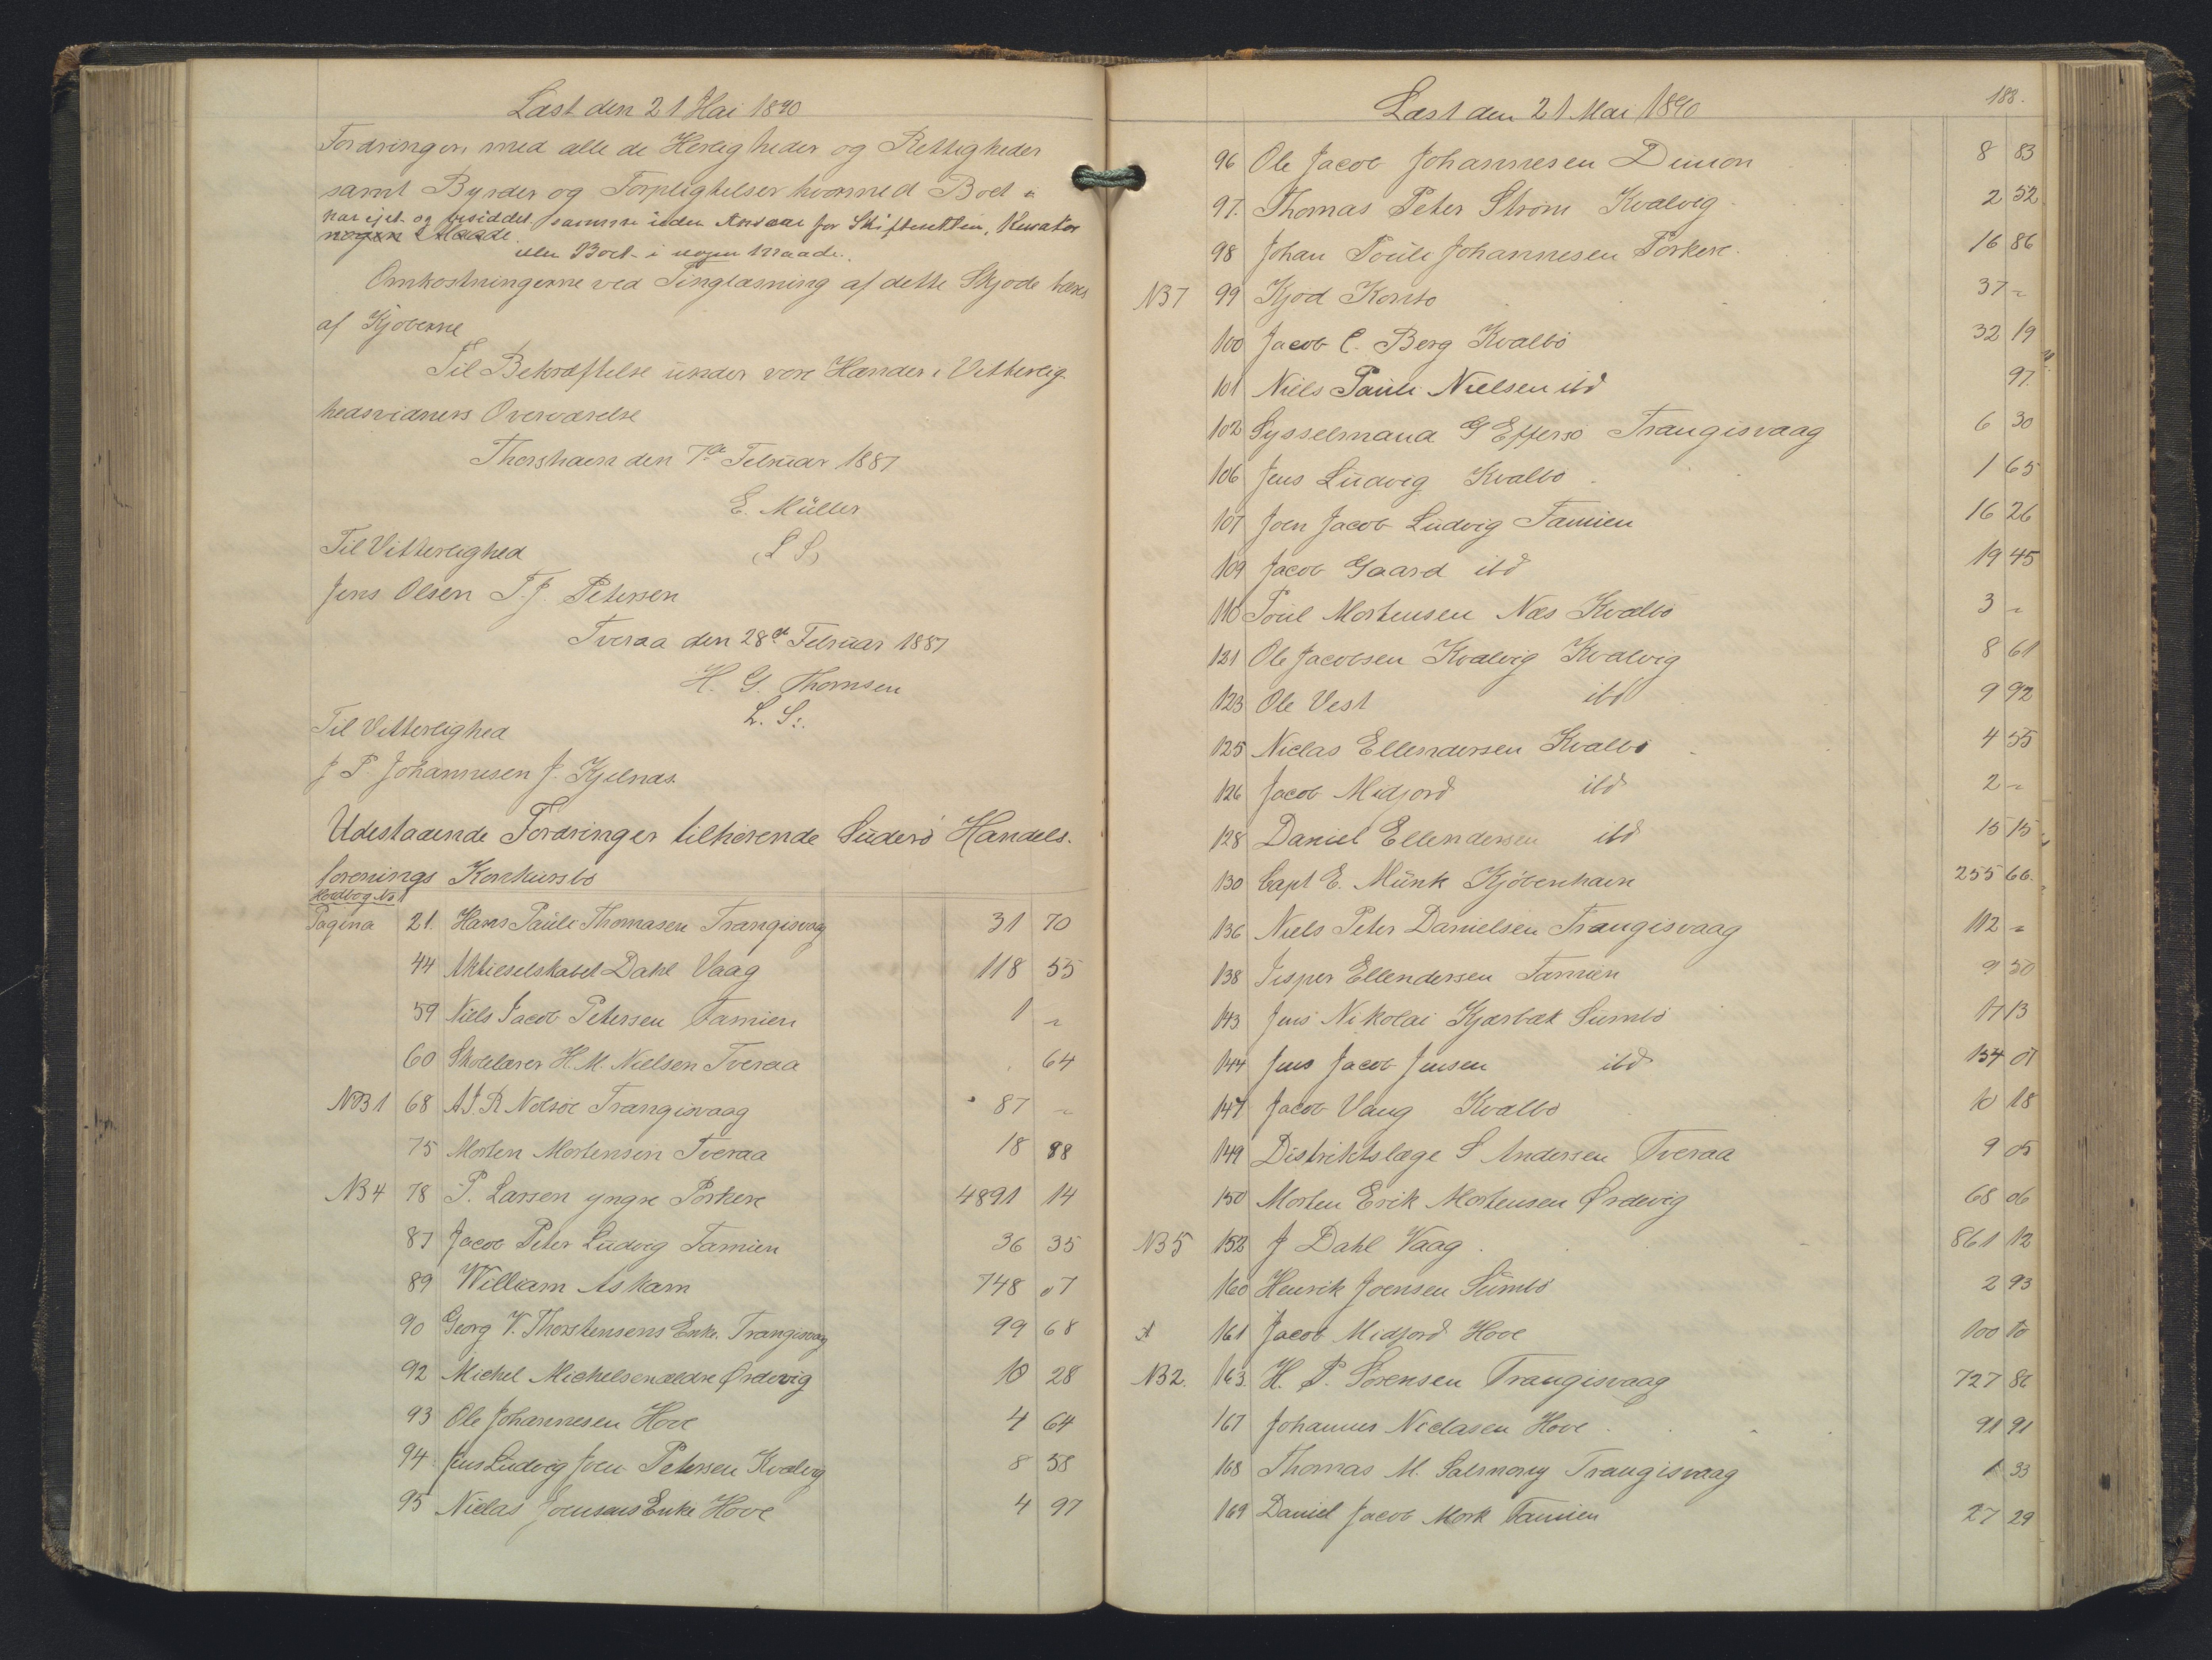 Læst den 21 Mai 1890
Fordringer med alle de Herligheder og Rettigheder
samt Byrder og Forpligtelser hvormed Boet i
har ejet og besiddet samme uden Ansvar for Skifteretten, Kurator
nogen Maade
eller Boet i nogen Maade.
Omkostningerne ved Tinglæsning af dette Skjøde bæres
af Kjøberne
Til Bekræftelse under vore Hænder i Vitterlig
hedsvidners Overværelse
Thorshavn den 7de Februar 1887
E. Müller
Til Vitterlighed (L S)
Jens Olsen T. J. Petersen
Tveraa den 28de Februar 1887
H. G. Thomsen
L. S.
Til Vitterlighed
J P Johannesen J. Kjelnæs.
Udestaaende Fordringer tilhørende Suderø Handels.
forenings Konkursbo
Hovedbog No 1
Pagina 21. Hans Pauli Thomasen Trangisvaag 31 70
44 Aktieselskabet Dahl Vaag 118 55
59 Niels Jacob Petersen Famien 1 "
60 Skolelærer H. M. Nielsen Tveraa 64
NB 1 68 A. S. R Nolsøe Trangisvaag 87 "
75 Morten Mortensen Tveraa 18 88
NB 4 78 P. Larsen yngre Porkere 4891 14
87 Jacob Peter Ludvig Famien 36 35
89 William Askam 748 07
90 Georg V. Thorstensens Enke. Trangisvaag 99 68
92 Michel Michelsen ældre Ørdevig 10 28
93 Ole Johannesen Hove 4 64
94 Jens Ludvig Joen Petersen Kvalvig 8 58
95 Niclas Joensens Enke Hove 4 97
188.
Læst den 21 Mai 1890
96 Ole Jacob Johannesen Dimon 8 83
97. Thomas Peter Strøm Kvalvig 2 52
98 Johan Pouli Johannesen Porkere. 16 86
NB 7 99 Kjød Konto 37 "
100 Jacob C. Berg Kvalbø 32 19
101 Niels Pauli Nielsen ibd 97
102 Sysselmand G Effersø Trangisvaag 6 30
106 Jens Ludvig Kvalbø 1 65
107 Joen Jacob Ludvig Famien 16 26
109 Jacob Gaard ibd 19 45
110 Poul Mortensen Næs Kvalbø 3 "
121 Ole Jacobsen Kvalvig Kvalvig 8 61
123 Ole Vest ibd 9 92
125 Niclas Ellendersen Kvalbø 4 55
126 Jacob Midjord ibd 2 "
128 Daniel Ellendersen ibd 15 15
130 Capt E. Munk Kjøbenhavn 255 66
136 Niels Peter Danielsen Trangisvaag 112 "
138 Jesper Ellendersen Famien 9 50
143 Jens Nikolai Kjærbæk Sumbø 17 13
144 Jens Jacob Jensen ibd 134 07
147 Jacob Vang Kvalbø 10 18
149 Distriktslæge S Andersen Tveraa 9 05
150 Morten Erik Mortensen Ørdevig 68 06
NB 5 152 J Dahl Vaag 861 12
160 Henrik Joensen Sumbø 2 93
161 Jacob Midjord Hove 100 10
NB 2. 163 H. P. Sørensen Trangisvaag 727 86
167 Johannes Niclasen Hove 91 91
168 Thomas M. Salmony Trangisvaag 1 33
169 Daniel Jacob Mork Famien 27 29